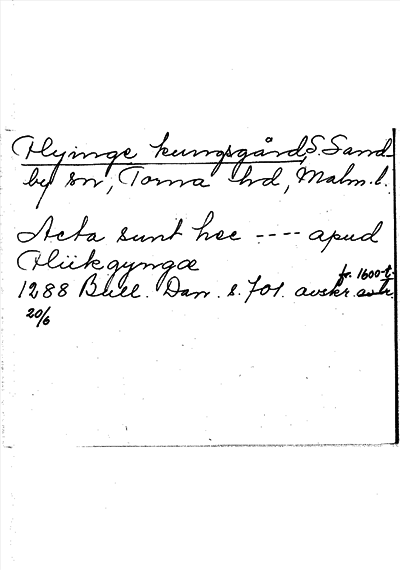 Flyinge kungsgård, S. Sand-
by sn, Torna hd, Malm. l.
Acta sunt hec ---- apud
Fliikgyngæ
fr. 1600-t.
1288 Bull. Dan. s. 701. avskr.
20/6